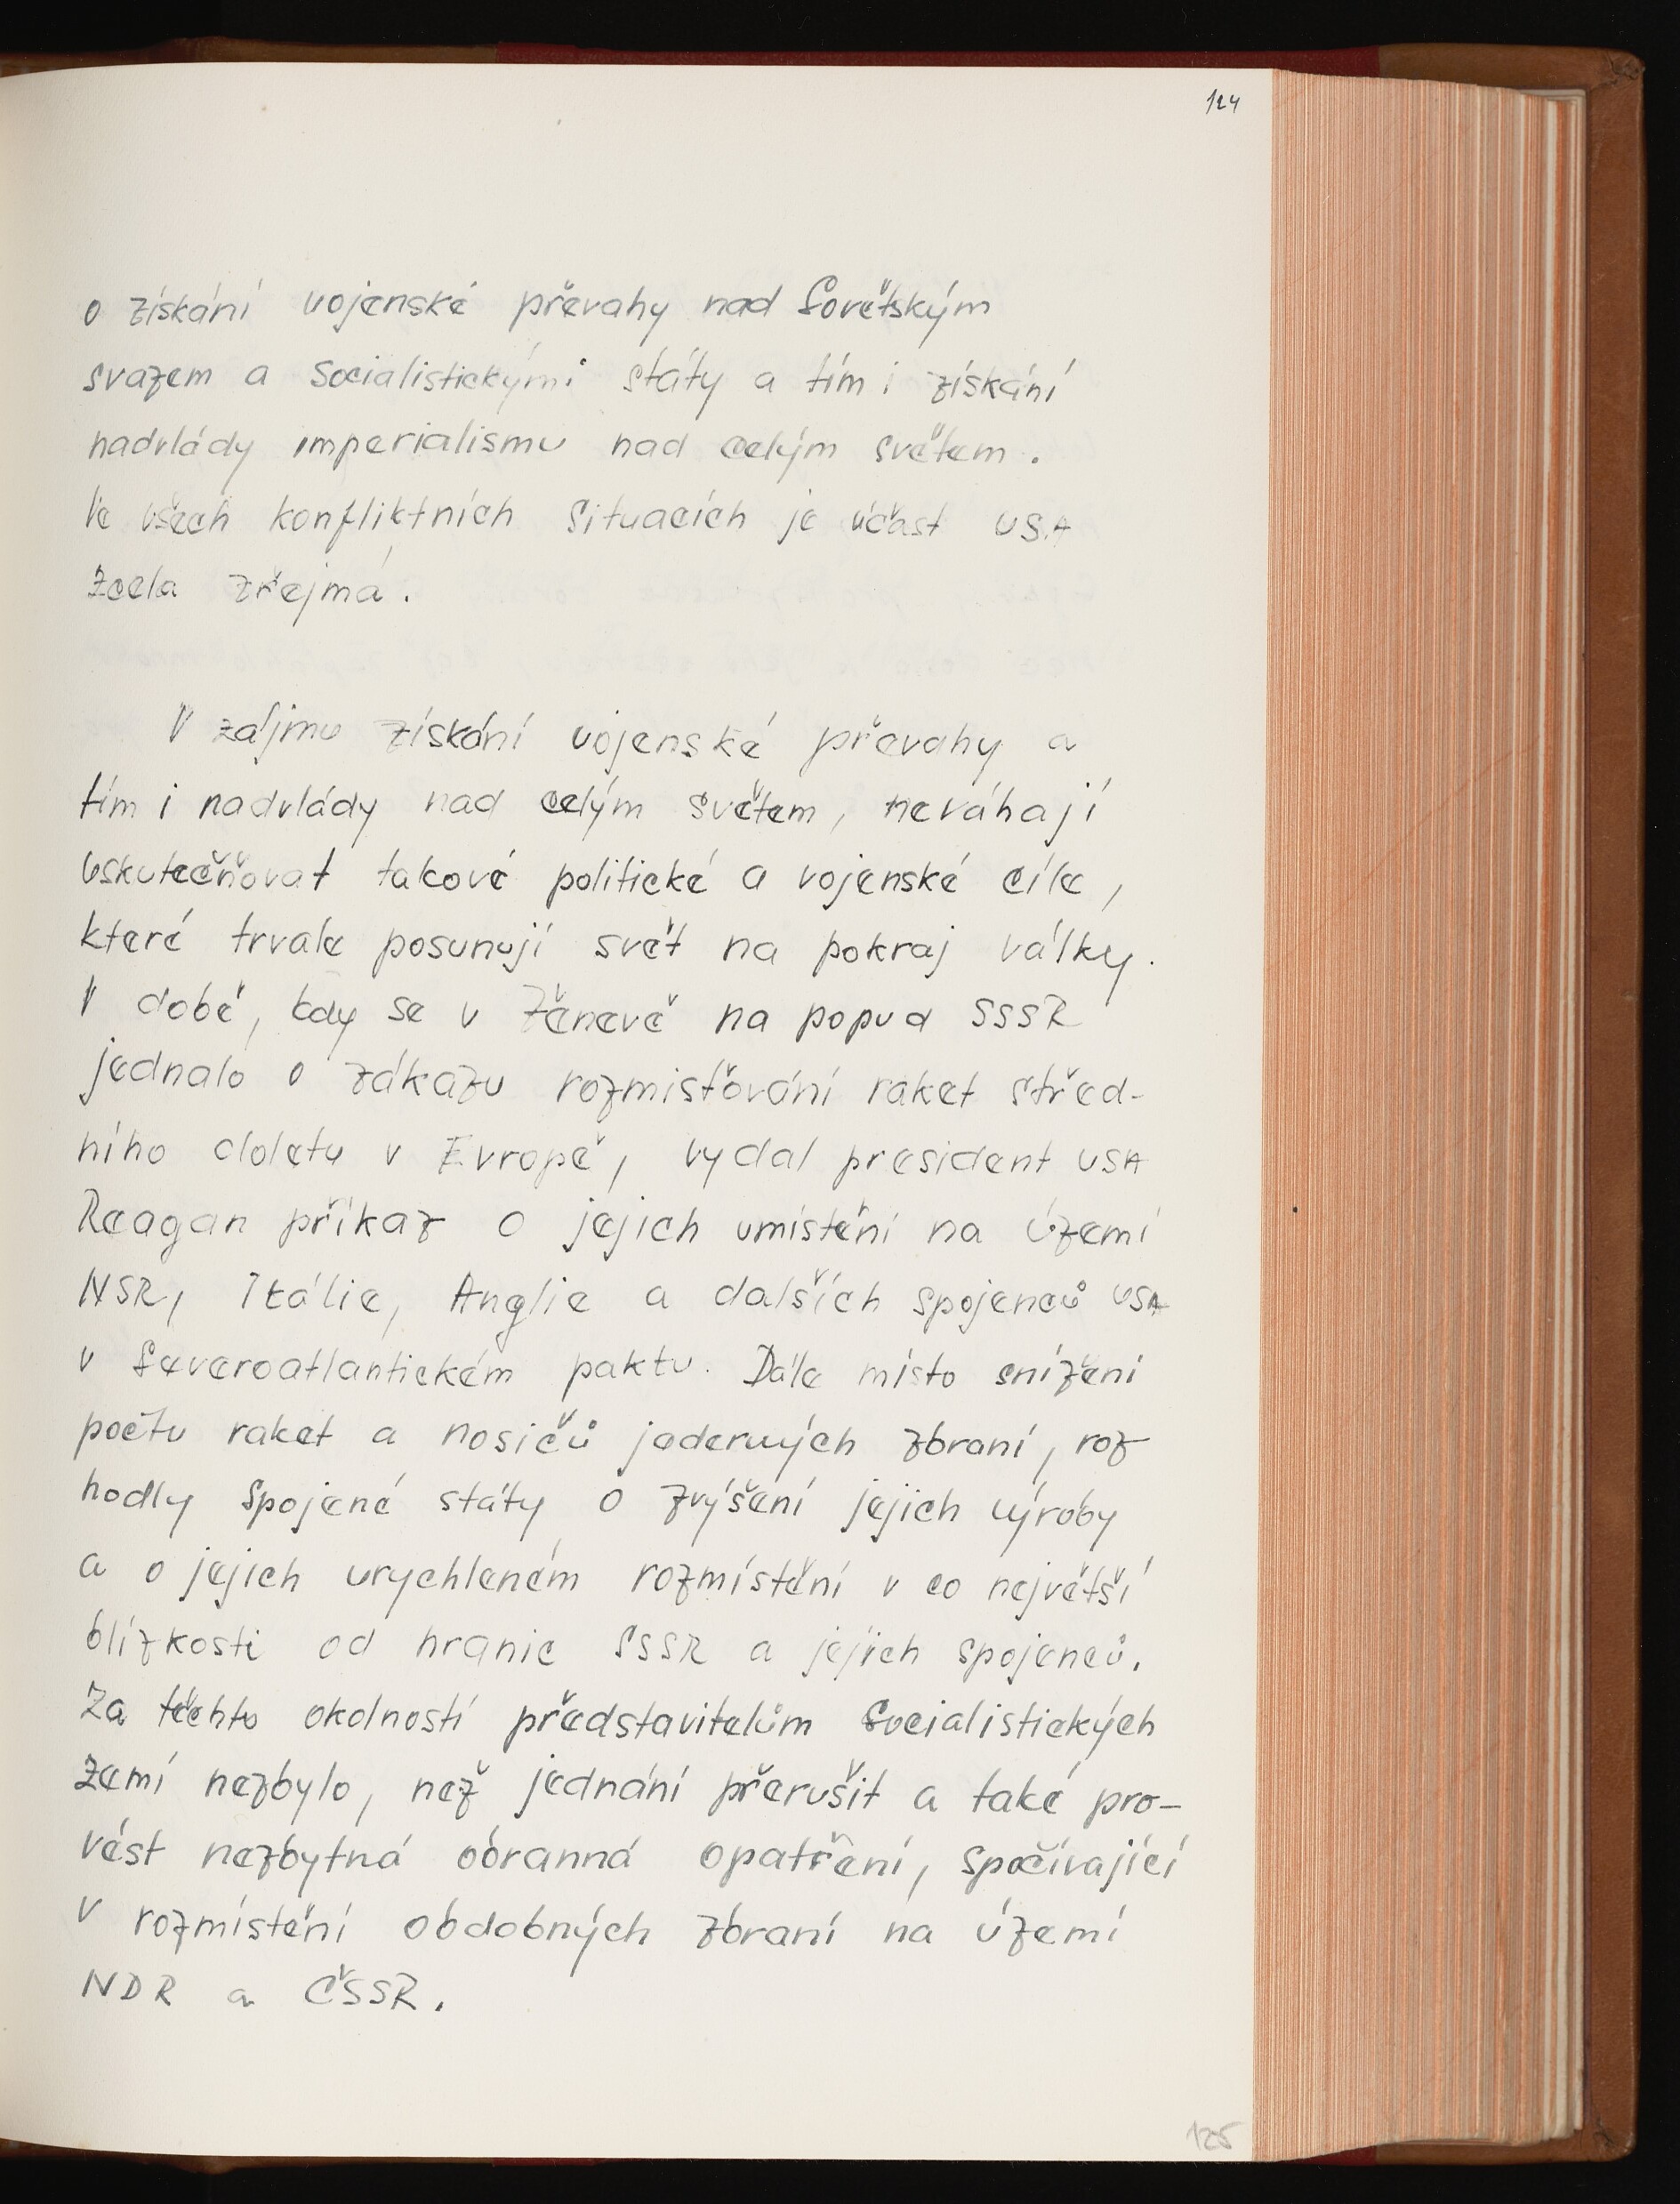 124
o získání vojenské převahy nad Sovětským
svazem a Socialistickými státy a tím i získání
nadvlády imperialismu nad celým světem.
Ve všech konfliktních situacích je účast USA
zcela zřejmá.
V zájmu získání vojenské převahy a
tím i nadvlády nad celým světem, neváhají
uskutečňovat takové politické a vojenské cíle,
které trvale posunují svět na pokraj války.
V době, kdy se v Ženevě na popud SSSR
jednalo o zákazu rozmisťování raket střed-
ního doletu v Evropě, vydal president USA
Reagan příkaz o jejich umístění na území
NSR, Itálie, Anglie a dalších spojenců USA
v Severoatlantickém paktu. Dále místo snížení
počtu raket a nosičů jaderných zbraní, roz
hodly Spojené státy o zvýšení jejich výroby
a o jejich urychleném rozmístění v co největší
blízkosti od hranic SSSR a jejich spojenců.
Za těchto okolností představitelům Socialistických
zemí nezbylo, než jednání přerušit a také pro-
vést nezbytná obranná opatření, spočívající
v rozmístění obdobných zbraní na území
NDR a ČSSR.
125